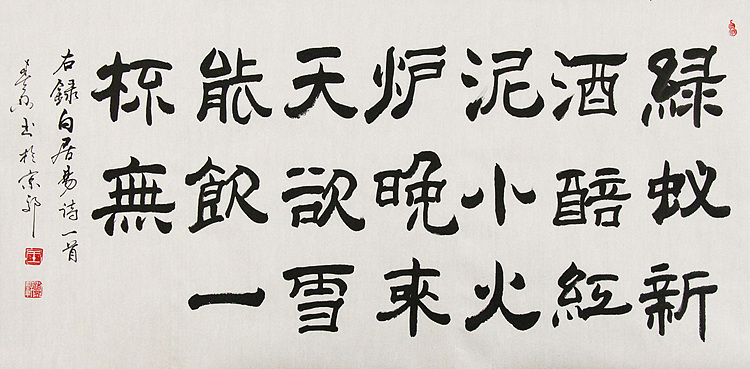 緑蚁新
酒醅紅
泥小火
炉晚来
天欲雪
能飲一
杯無
右録白居易诗一首
书於京郊